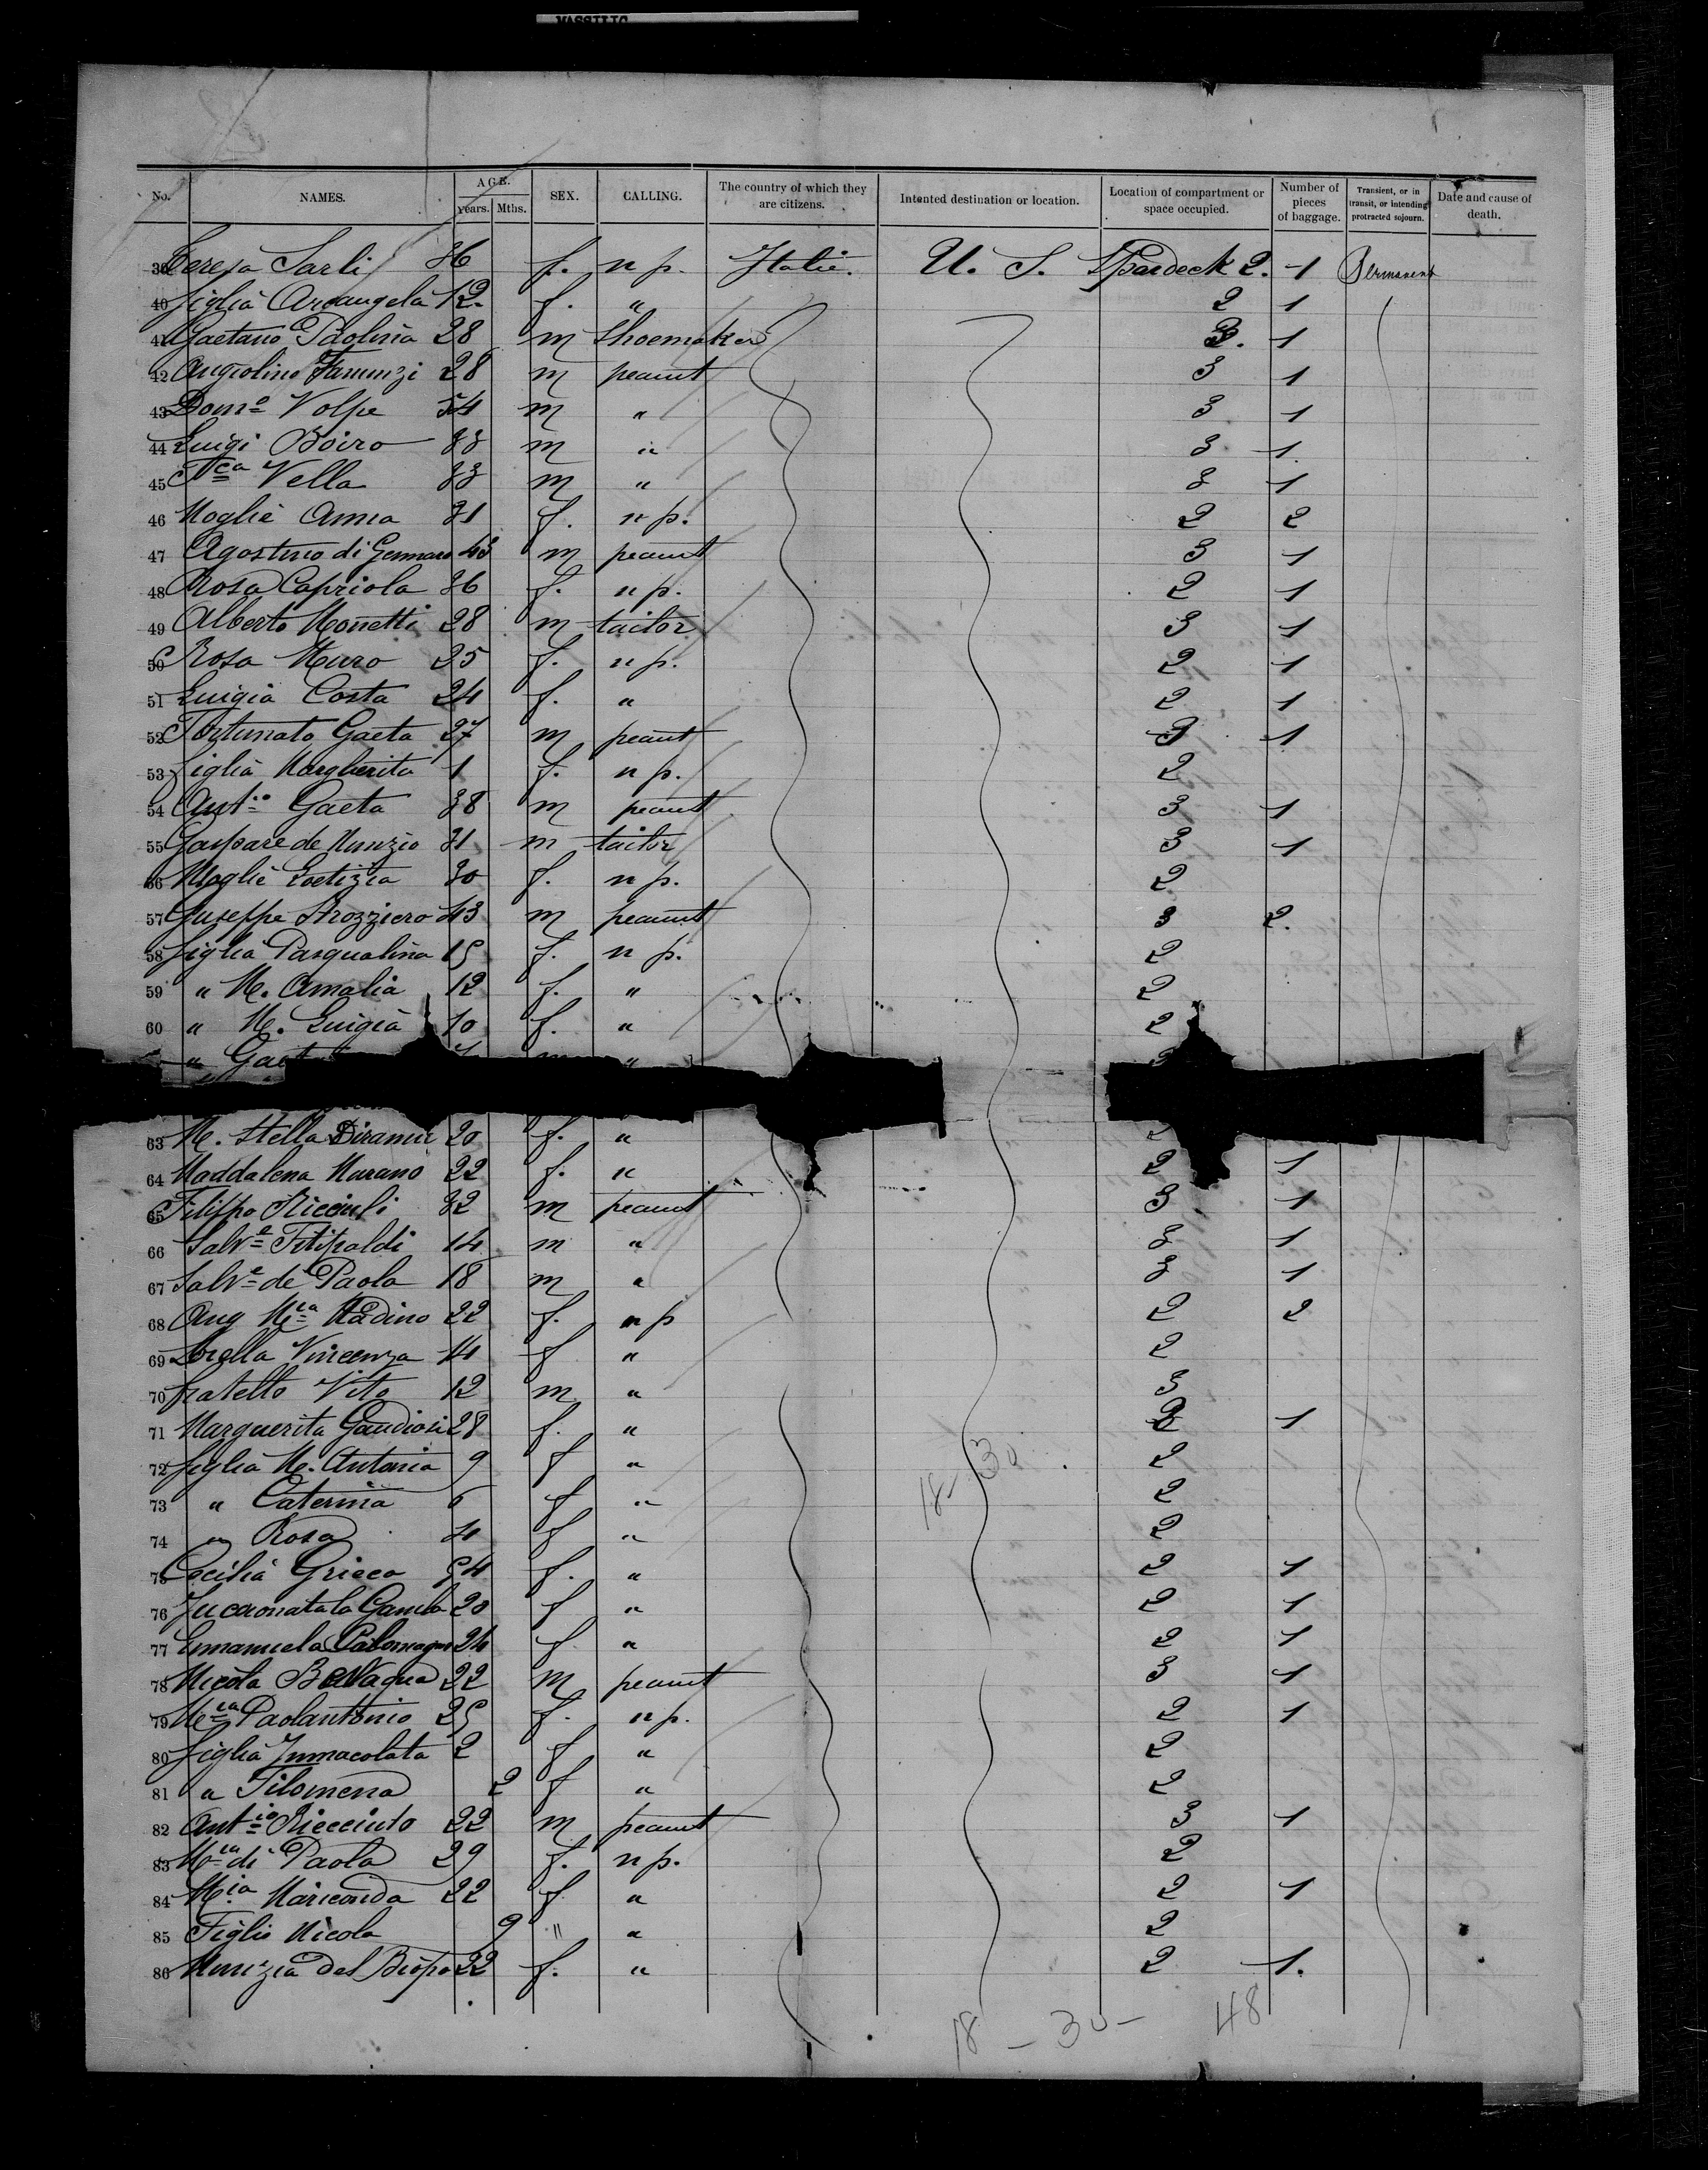 No. NAMES. AGE. Years. Mths. SEX. CALLING. The country of which they are citizens. Intented destination or location. Location of compartment or space occupied. Number of pieces of baggage. Transient, or in transit, or intending protracted sojourn. Date and cause of death.
39 Teresa Sarli 36 f. n p. Italie. U. S. Spardeck 2. 1 Permanent
40 figlia Arcangela 12. f. " 2 1
41 Gaetano Paolina 28 m Shoemaker 3. 1
42 Angiolino 28 m peasant 3 1
43 Domo Volpe 54 m " 3 1
44 Luigi Boiro 33 m " 3 1.
45 Fca Vella 33 m " 3 1
46 Moglie Anna 31 f. n p. 2 2
47 Agostino di Gennaro 43 m peasant 3 1
48 Rosa Capriola 36 f. n p. 2 1
49 Alberto Monetti 28 m tailor 3 1
50 Rosa Muro 25 f. n p. 2 1
51 Luigia Costa 24 f. " 2 1
52 Fortunato Gaeta 27 m peasant 3 1
53 figlia Margherita 1 f. n p. 2
54 Antio Gaeta 38 m peasant 3 1
55 Gaspare de Nunzio 31 m tailor 3 1
56 Moglie Letizia 30 f. n p. 2
57 Giuseppe Strozziero 43 m peasant 3 2.
58 figlia Pasqualina 15 f. n p. 2
59 " M. Amalia 12 f. " 2
60 " M. Luigia 10 f. " 2
" Gaet "
63 M. Stella 20 f. " 2
64 Maddalena Marano 22 f. " 2 1
65 Filippo Ricciuli 32 m peasant 3 1
66 Salve Filipaldi 14 m " 3 1
67 Salve de Paola 18 m " 3 1
68 Ang Mria Nadino 22 f. n p 2 2
69 Sorella Vincenza 14 f " 2
70 fratello Vito 12 m " 3
71 Marguerita Gaudiosi 28 f. " 2 1
72 figlia M. Antonia 9 f " 2
73 " Caterina 6 f " 2
18 - 30
74 " Rosa 4 f " 2
75 Cecilia Grieco 54 f. " 2 1
76 20 f " 2 1
77 Emanuela Palomagno 24 f " 2 1
78 Nicola Bevilaqua 22 m peasant 3 1
79 Mria Paolantonio 25 f. n p. 2 1
80 figlia Immacolata 2 f " 2
81 " Filomena 2 f " 2
82 Antio Ricciuto 22 m peasant 3 1
83 Mria di Paola 29 f. n p. 2
84 Mria Mariconda 22 f " 2 1
85 Figlio Nicola 9 " " 2
86 Nunzia del 22 f. " 2 1.
18 - 30 - 48